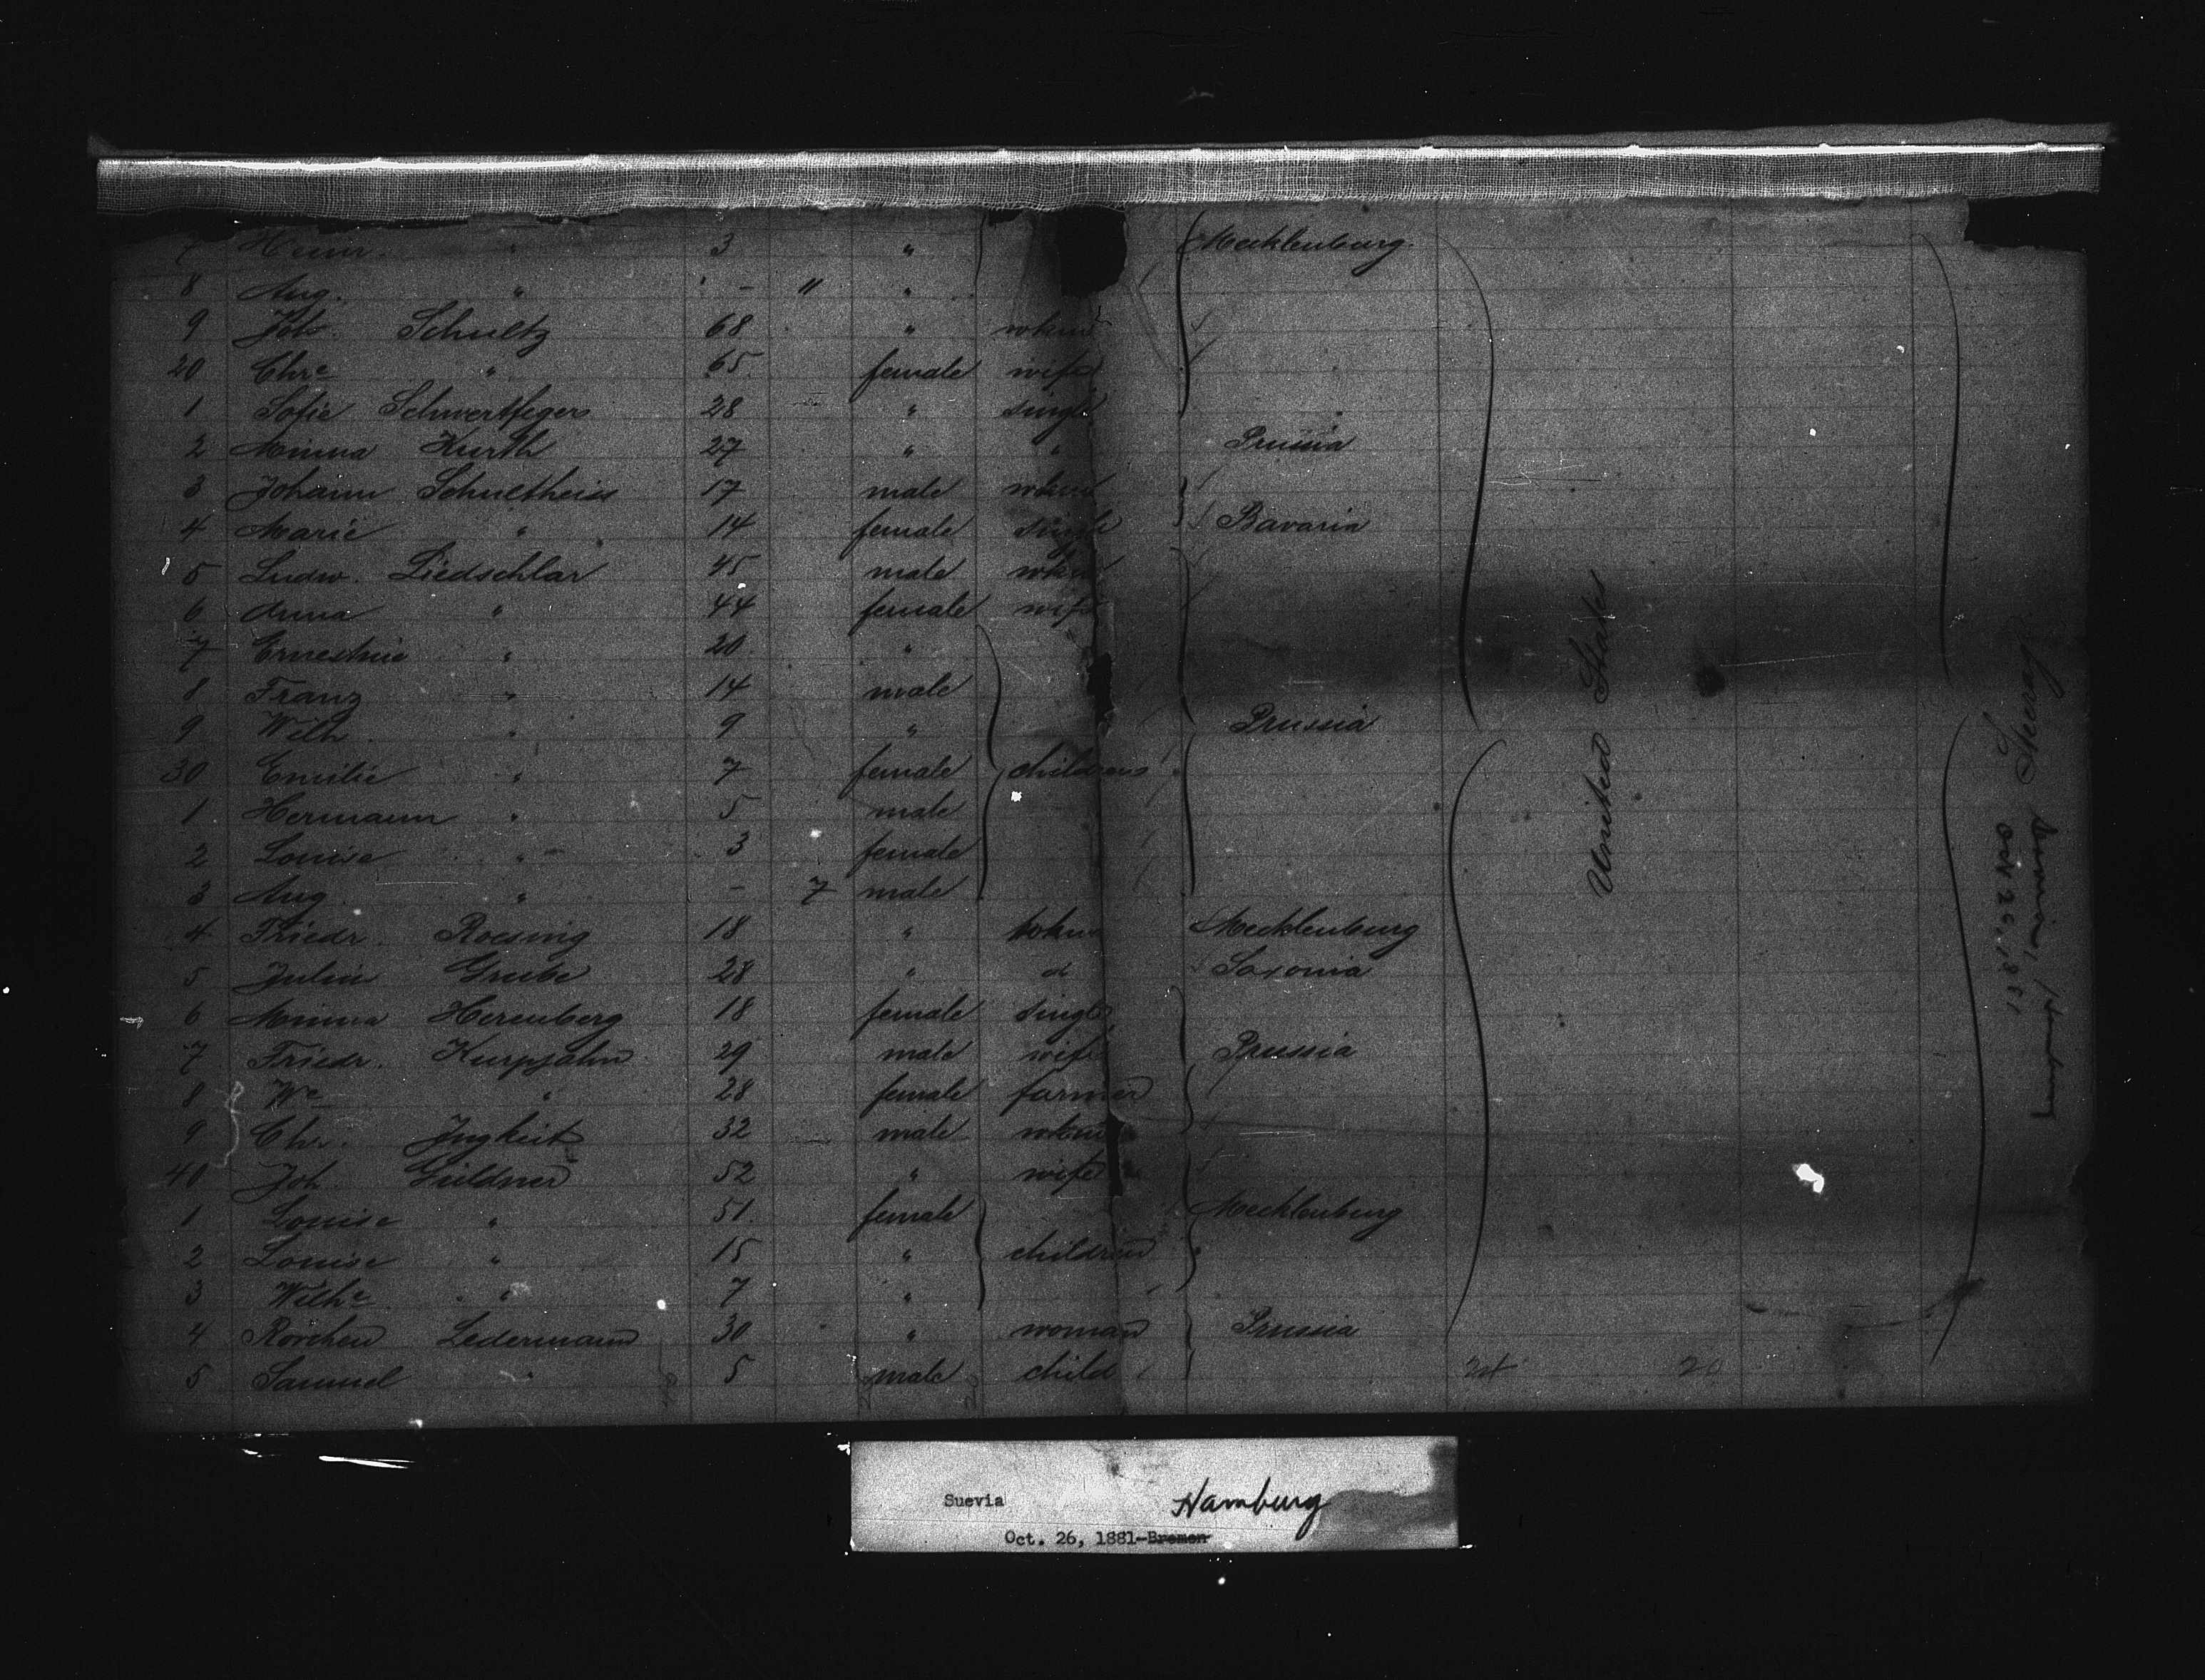 7 Heinr. " 3 " Mecklenburg.
8 Aug. " - 11 "
9 Joh. Schultz 68 " wkmd
20 Chre " 65 female wife
1 Sofie Schwertfegers 28 " single "
2 Minna Kurth 27 " " Prussia
3 Johann Schultheiss 17 male wkmd
4 Marie " 14 female single Bavaria
5 Ludw. Liedschlar 45 male wkm
6 Anna " 44 female wife
7 Ernestine " 20 "
8 Franz " 14 male
9 Wilh. " 9 " Prussia
30 Emilie " 7 female childrens
1 Hermann " 5 male
2 Louise " 3 female
3 Aug. " - 7 male
4 Friedr. Roesing 18 " wkm Mecklenburg
5 Julius Grube 28 " d Saxonia
6 Minna Herenberg 18 female single
7 Friedr. Kurpjahn 29 male wife Prussia
8 We " 28 female farmer
9 Chr. Jugkeit 32 male wkmd
40 Joh. Güldner 52 " wife
1 Louise " 51 female Mecklenburg
2 Louise " 15 " children
3 Wilhe " 7 "
4 Rörchen Ledermann 30 " woman Prussia
5 Samuel " 5 male child
United States
Suevia, Hamburg
Oct 26, 1881
Suevia Hamburg
Oct. 26, 1881-Bremen